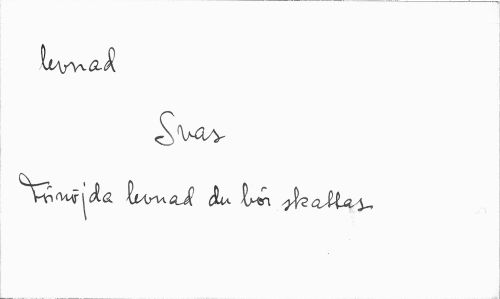 levnad
Svas
Förnöjda levnad du bör skattas